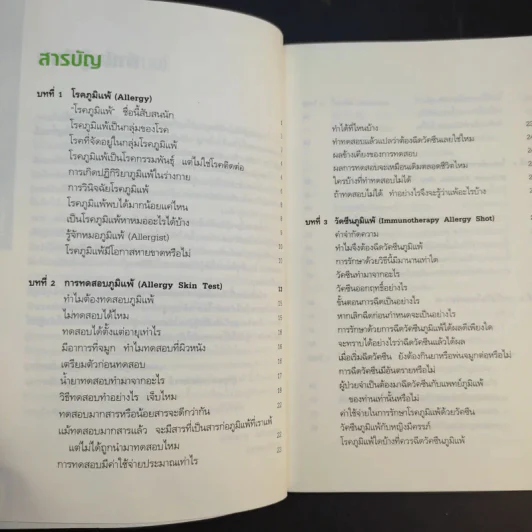 สารบัญ
บทที่ 1 โรคภูมิแพ้ (Allergy)
"โรคภูมิแพ้" ชื่อนี้สับสนนัก
โรคภูมิแพ้เป็นกลุ่มของโรค
โรคที่จัดอยู่ในกลุ่มโรคภูมิแพ้
โรคภูมิแพ้เป็นโรคกรรมพันธุ์ แต่ไม่ใช่โรคติดต่อ
การเกิดปฏิกิริยาภูมิแพ้ในร่างกาย
การวินิจฉัยโรคภูมิแพ้
โรคภูมิแพ้พบได้มากน้อยแค่ไหน
เป็นโรคภูมิแพ้หาหมออะไรได้บ้าง
รู้จักหมอภูมิแพ้ (Allergist)
โรคภูมิแพ้มีโอกาสหายขาดหรือไม่
บทที่ 2 การทดสอบภูมิแพ้ (Allergy Skin Test)
ทำไมต้องทดสอบภูมิแพ้
ไม่ทดสอบได้ไหม
ทดสอบได้ตั้งแต่อายุเท่าไร
มีอาการที่จมูก ทำไมทดสอบที่ผิวหนัง
เตรียมตัวก่อนทดสอบ
น้ำยาทดสอบทำมาจากอะไร
วิธีทดสอบทำอย่างไร เจ็บไหม
ทดสอบมากสารหรือน้อยสารจะดีกว่ากัน
แม้ทดสอบมากสารแล้ว จะมีสารที่เป็นสารก่อภูมิแพ้ที่เราแพ้
แต่ไม่ได้ถูกนำมาทดสอบไหม
การทดสอบมีค่าใช้จ่ายประมาณเท่าไร
ทำได้ที่ไหนบ้าง
ทำทดสอบแล้วแปลว่าต้องฉีดวัคซีนเลยใช่ไหม
ผลข้างเคียงของการทดสอบ
ผลการทดสอบจะเหมือนเดิมตลอดชีวิตไหม
ใครบ้างที่ทำทดสอบไม่ได้
ถ้าทดสอบไม่ได้ ทำอย่างไรจึงจะรู้ว่าแพ้อะไรบ้าง
บทที่ 3 วัคซีนภูมิแพ้ (Immunotherapy Allergy Shot)
คำจำกัดความ
ทำไมจึงต้องฉีดวัคซีนภูมิแพ้
การรักษาด้วยวิธีนี้มีมานานเท่าใด
วัคซีนทำมาจากอะไร
วัคซีนออกฤทธิ์อย่างไร
ขั้นตอนการฉีดเป็นอย่างไร
หากเลิกฉีดก่อนกำหนดจะเป็นอย่างไร
การรักษาด้วยการฉีดวัคซีนภูมิแพ้ได้ผลดีเพียงใด
จะทราบได้อย่างไรว่าฉีดวัคซีนแล้วได้ผล
เมื่อเริ่มฉีดวัคซีน ยังต้องกินยาหรือพ่นจมูกต่อหรือไม่
การฉีดวัคซีนมีอันตรายหรือไม่
ผู้ป่วยจำเป็นต้องมาฉีดวัคซีนกับแพทย์ภูมิแพ้
ของท่านเท่านั้นหรือไม่
ค่าใช้จ่ายในการรักษาโรคภูมิแพ้ด้วยวัคซีน
วัคซีนภูมิแพ้กับหญิงมีครรภ์
โรคภูมิแพ้ใดบ้างที่ควรฉีดวัคซีนภูมิแพ้